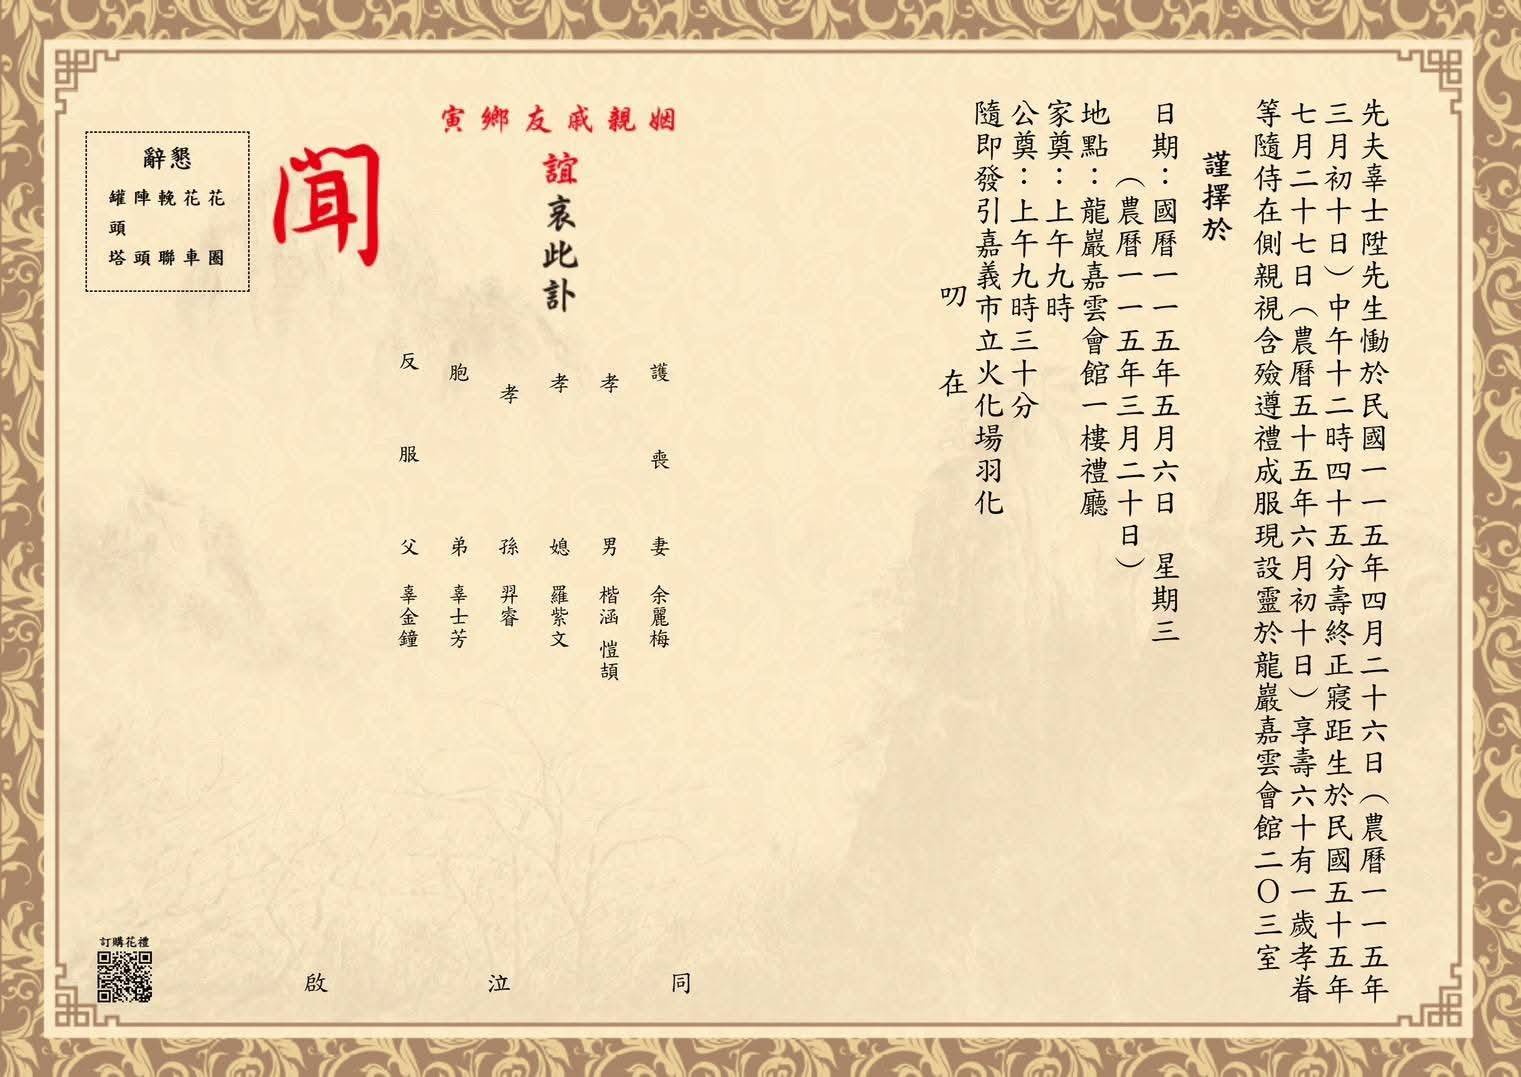 先夫辜士陞先生慟於民國一一五年四月二十六日（農曆一一五年
三月初十日）中午十二時四十五分壽終正寢距生於民國五十五年
七月二十七日（農曆五十五年六月初十日）享壽六十有一歲孝眷
等隨侍在側親視含殮遵禮成服現設靈於龍巖嘉雲會館二〇三室
謹擇於
日期：國曆一一五年五月六日 星期三
（農曆一一五年三月二十日）
地點：龍巖嘉雲會館一樓禮廳
家奠：上午九時
公奠：上午九時三十分
隨即發引嘉義市立火化場羽化
叨在
姻親戚友鄉寅
誼哀此訃
聞
護喪妻 余麗梅
孝男 楷涵 愷頡
孝媳 羅紫文
孝孫 羿睿
胞弟 辜士芳
反服父 辜金鐘
同泣啟
懇辭
花圈
花車
輓聯
陣頭
罐頭塔
訂購花禮